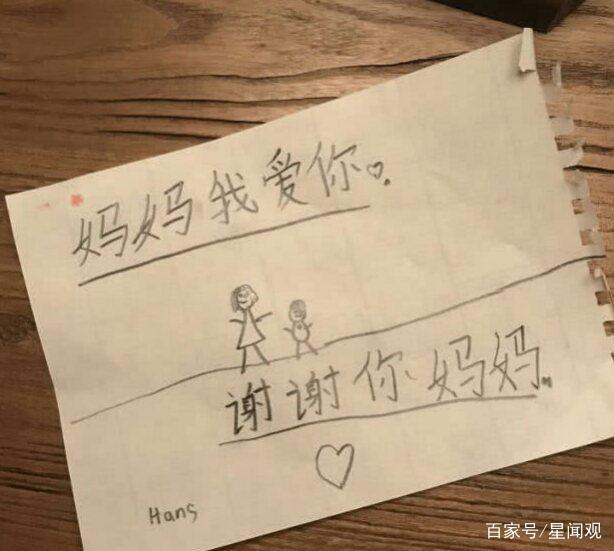 妈妈我爱你♡.
谢谢你妈妈..
Hans
百家号/星闻观